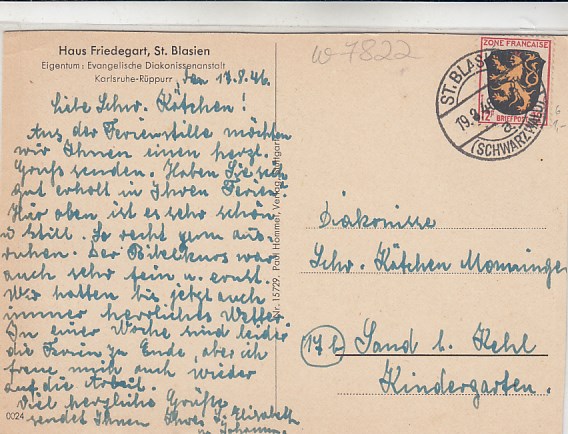 Haus Friedegart, St. Blasien
Eigentum: Evangelische Diakonissenanstalt
Karlsruhe-Rüppurr
den 17.8.46.
Liebe Schw. Kätchen!
Aus der Ferienstille möchten
wir Ihnen einen herzl.
Gruß senden. Haben Sie sich
gut erholt in Ihren Ferien?
Hier oben ist es sehr schön
u still. So recht zum aus-
ruhen. Der Bibelkurs war
auch sehr fein u. ernst.
Wir hatten bis jetzt auch
immer herrliches Wetter
In einer Woche sind leider
die Ferien zu Ende, aber ich
freue mich auch wieder
auf die Arbeit.
Viel herzliche Grüße
sendet Ihnen Ihre S. Elisabeth
0024
Nr. 15729. Paul Hommer, Verlag, Stuttgart
W 7822
ZONE FRANÇAISE
12 Pf BRIEFPOST
ST. BLASI
19.8.46
a
(SCHWARZWALD)
Diakonisse
Schw. Kätchen
17b Sand b. Kehl
Kindergarten.